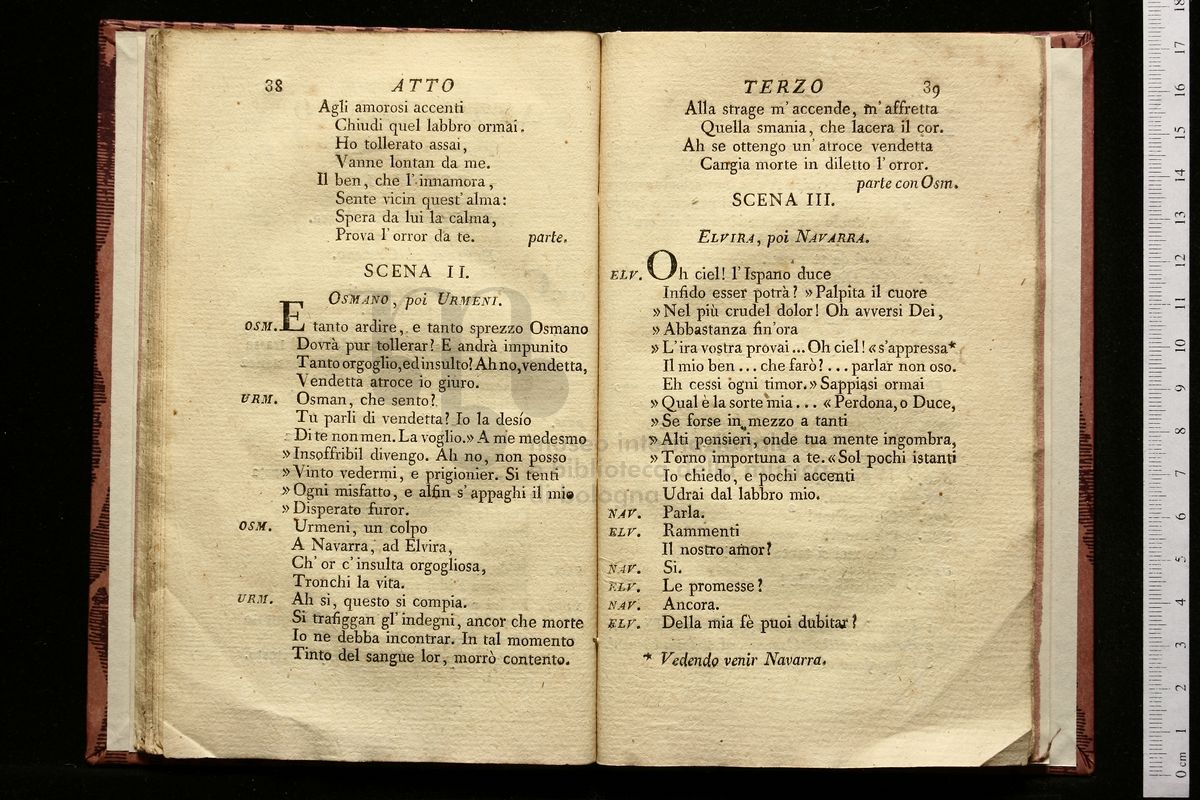 38 ATTO
Agli amorosi accenti
Chiudi quel labbro ormai.
Ho tollerato assai,
Vanne lontan da me.
Il ben, che l'innamora,
Sente vicin quest' alma:
Spera da lui la calma,
Prova l'orror da te. parte.
SCENA II.
OSMANO, poi URMENI.
OSM. E tanto ardire, e tanto sprezzo Osmano
Dovrà pur tollerar? E andrà impunito
Tanto orgoglio, ed insulto? Ah no, vendetta,
Vendetta atroce io giuro.
URM. Osman, che sento?
Tu parli di vendetta? Io la desío
Di te non men. La voglio.» A me medesmo
» Insoffribil divengo. Ah no, non posso
» Vinto vedermi, e prigionier. Si tenti
» Ogni misfatto, e alfin s' appaghi il mio
» Disperato furor.
OSM. Urmeni, un colpo
A Navarra, ad Elvira,
Ch' or c' insulta orgogliosa,
Tronchi la vita.
URM. Ah si, questo si compia.
Si trafiggan gl' indegni, ancor che morte
Io ne debba incontrar. In tal momento
Tinto del sangue lor, morrò contento.
TERZO 39
Alla strage m' accende, m' affretta
Quella smania, che lacera il cor.
Ah se ottengo un' atroce vendetta
Cangia morte in diletto l' orror.
parte con Osm.
SCENA III.
ELVIRA, poi NAVARRA.
ELV. Oh ciel! l' Ispano duce
Infido esser potrà? » Palpita il cuore
» Nel più crudel dolor! Oh avversi Dei,
» Abbastanza fin'ora
» L'ira vostra provai... Oh ciel! « s'appressa*
Il mio ben ... che farò? ... parlar non oso.
Eh cessi ogni timor.» Sappiasi ormai
» Qual è la sorte mia... « Perdona, o Duce,
» Se forse in mezzo a tanti
» Alti pensieri, onde tua mente ingombra,
» Torno importuna a te. « Sol pochi istanti
Io chiedo, e pochi accenti
Udrai dal labbro mio.
NAV. Parla.
ELV. Rammenti
Il nostro amor?
NAV. Si.
ELV. Le promesse?
NAV. Ancora.
ELV. Della mia fè puoi dubitar?
* Vedendo venir Navarra.
0 cm 1 2 3 4 5 6 7 8 9 10 11 12 13 14 15 16 17 18